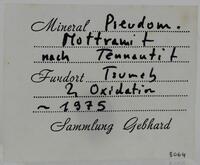 Mineral Pseudom.
Mottramit
nach Tennantit
Fundort Tsumeb
2, Oxidation
~ 1975
Sammlung Gebhard